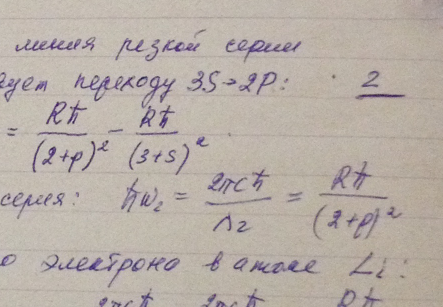 линия резкой серии
дует переходу 3S→2P: 2
= Rħ/(2+p)² - Rħ/(3+s)²
серия: ħω₂ = 2πcħ/λ₂ = Rħ/(2+p)²
о электрона в атоме Li:
2πcħ 2πcħ Rħ